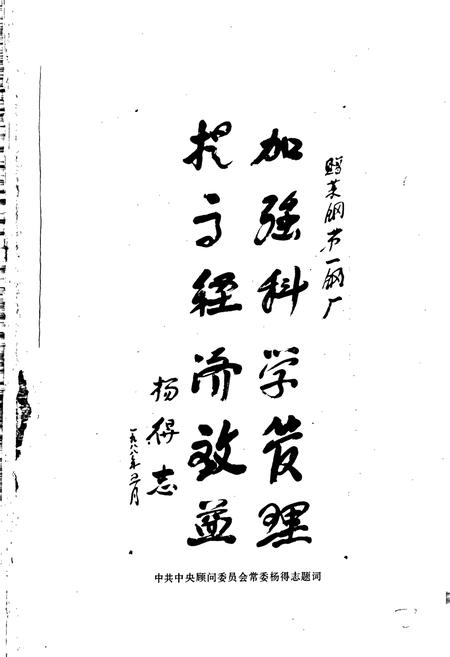 赠莱钢第一钢厂
加强科学管理
提高经济效益
杨得志
一九八八年五月
中共中央顾问委员会常委杨得志题词